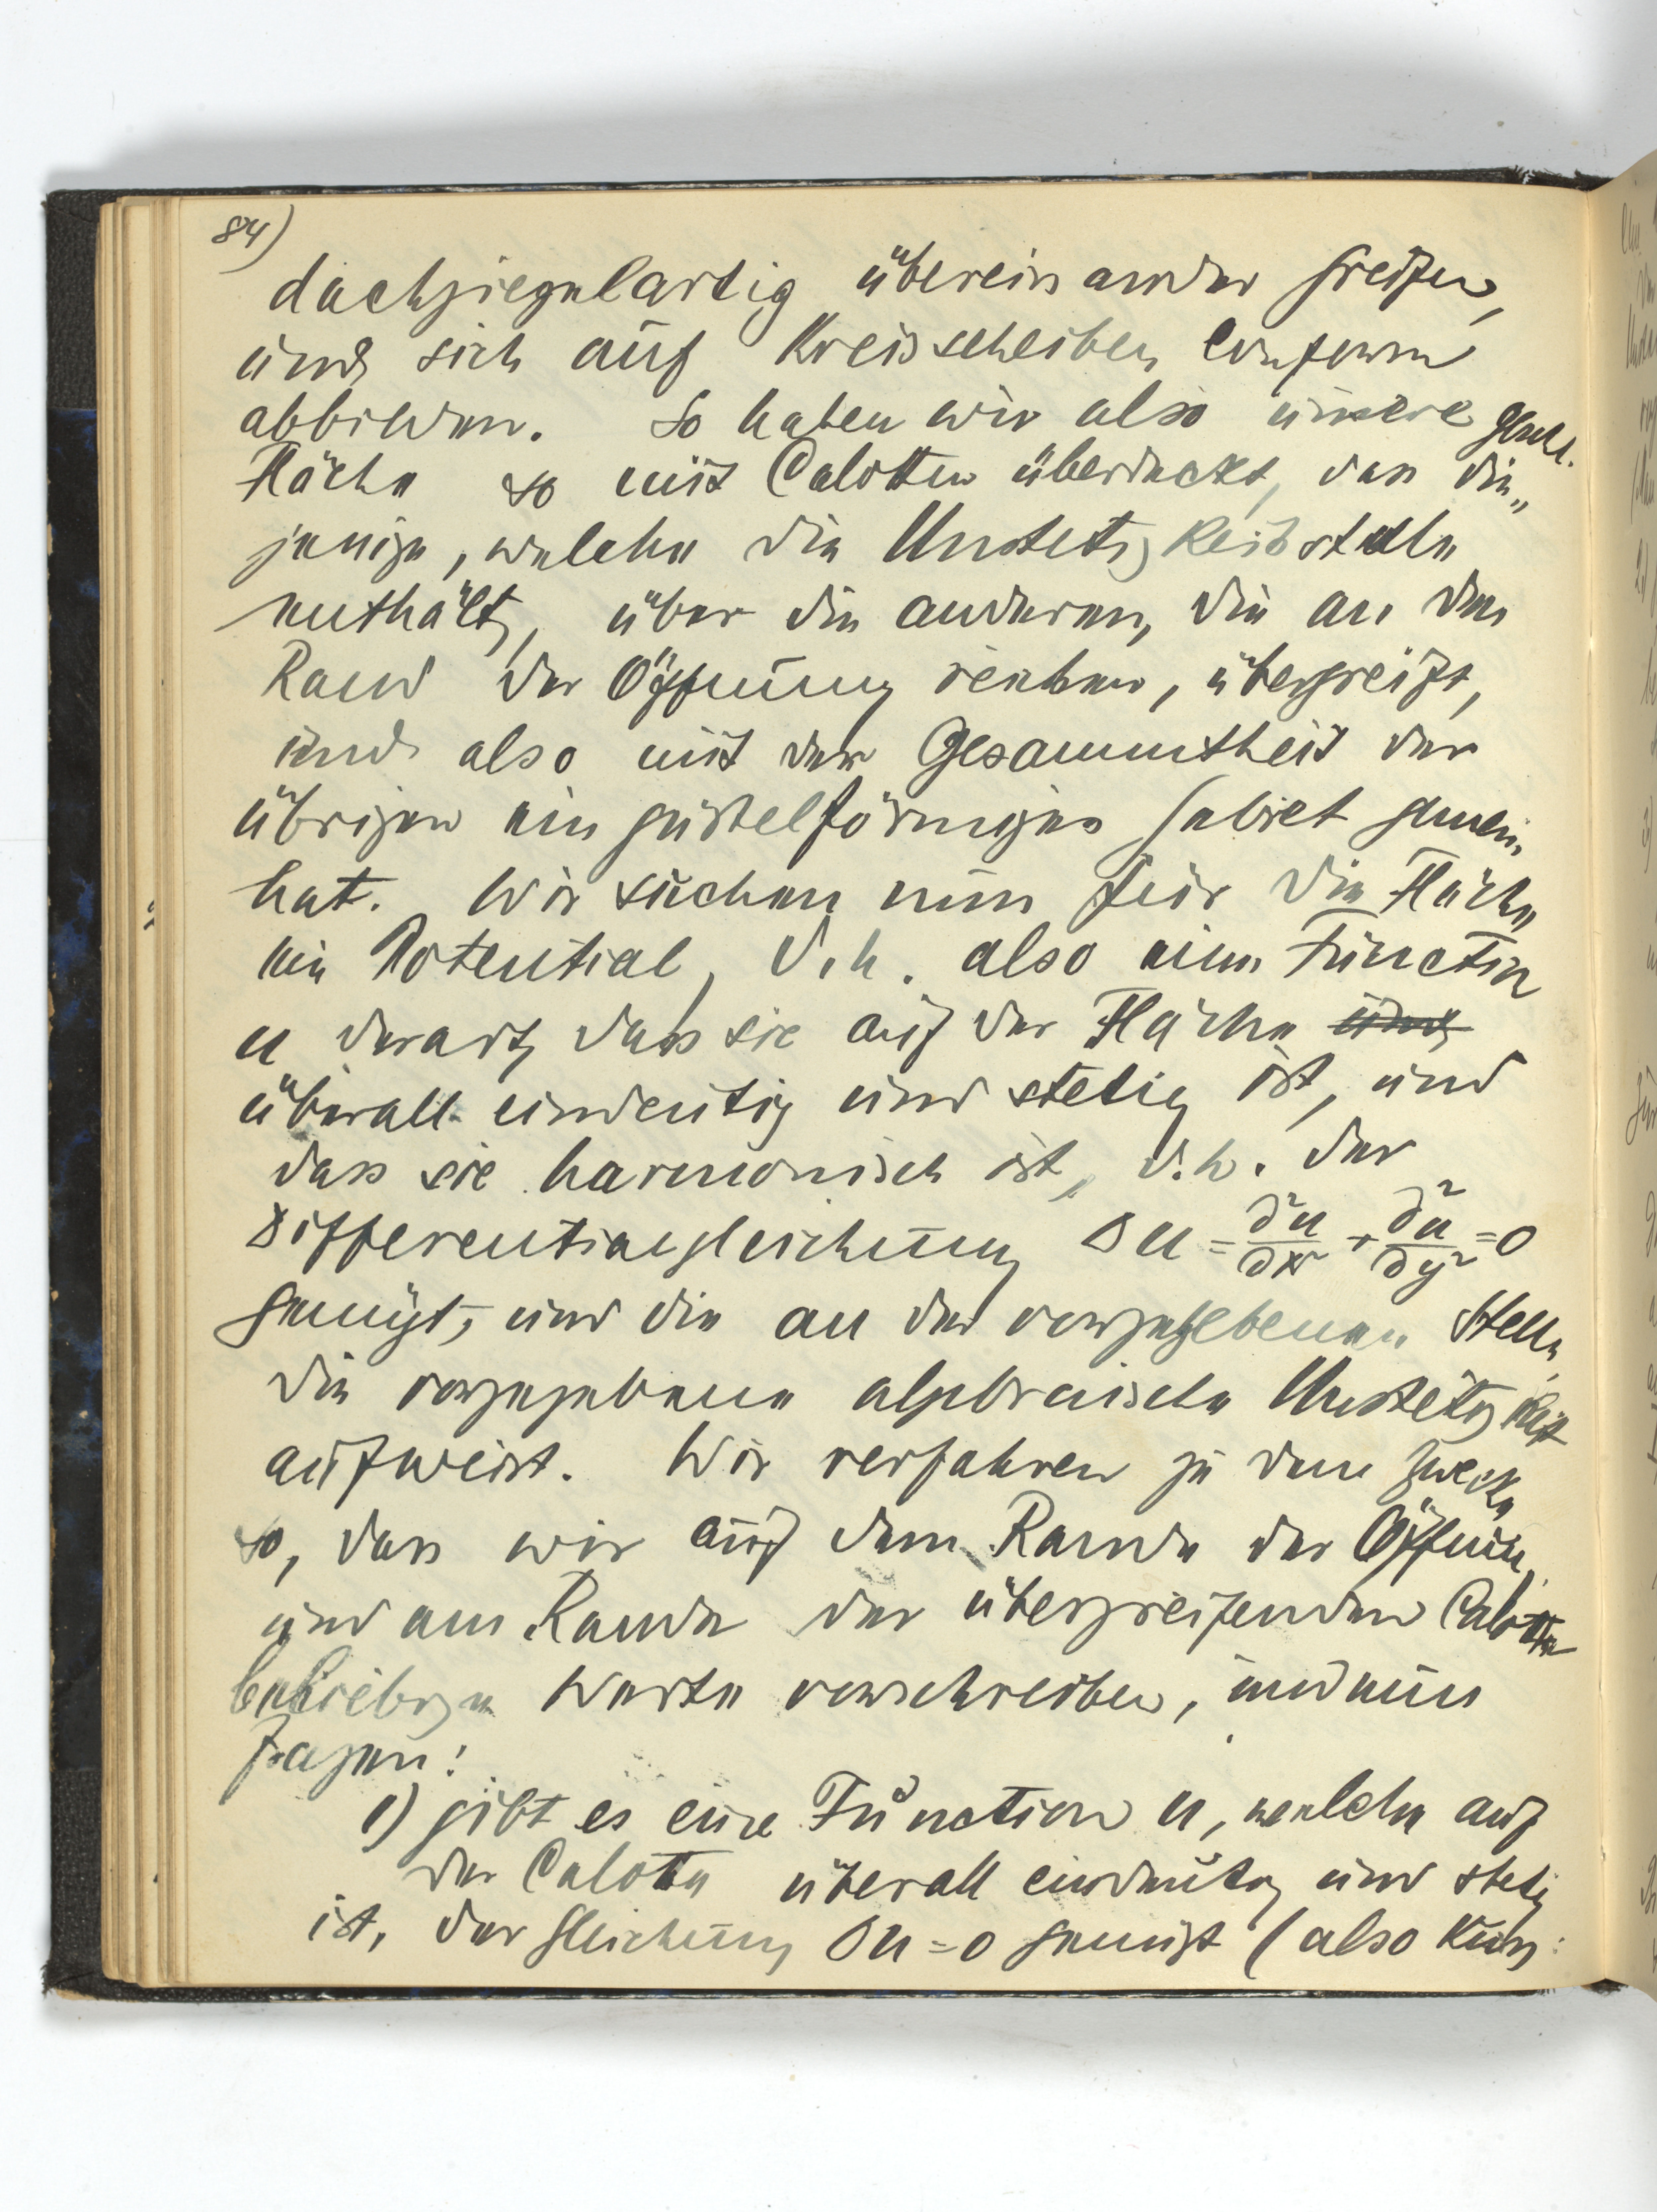 84)
dachziegelartig übereinander greifen,
und sich auf Kreisscheiben conform
abbilden. So haben wir also unsere geschl.
Fläche so mit Calotten überdeckt, dass die„
jenige, welche die Unstetigkeitsstelle
enthält, über die anderen, die an den
Rand der Öffnung reichen, übergreift,
und also mit der Gesammtheit der
übrigen ein gürtelförmiges Gebiet gemein
hat. Wir suchen nun für die Fläche
ein Potential, d.h. also eine Function
u derart, dass sie auf der Fläche und
überall eindeutig und stetig ist, und
dass sie harmonisch ist, d.h. der
Differentialgleichung Δu = ∂²u/∂x² + ∂²u/∂y² = 0
genügt, und die an der vorgegebenen Stelle
die vorgegebene algebraische Unstetigkeit
aufweist. Wir verfahren zu dem Zwecke
so, dass wir auf dem Rande der Öffnung
und am Rande der übergreifenden Calotte
beliebige Werte vorschreiben, und nun
fragen:
1) gibt es eine Function u, welche auf
der Calotte überall eindeutig und stetig
ist, der Gleichung Δu = 0 genügt (also kurz: